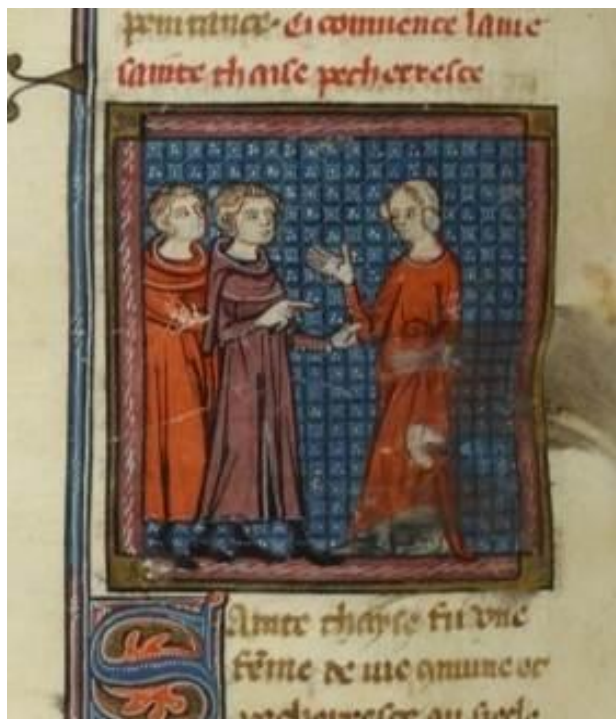 penitance. Ci commence la vie
sainte thaise pecherresce
Sainte thayse fu vne
feme de vie comune et
pecherresce au siecle